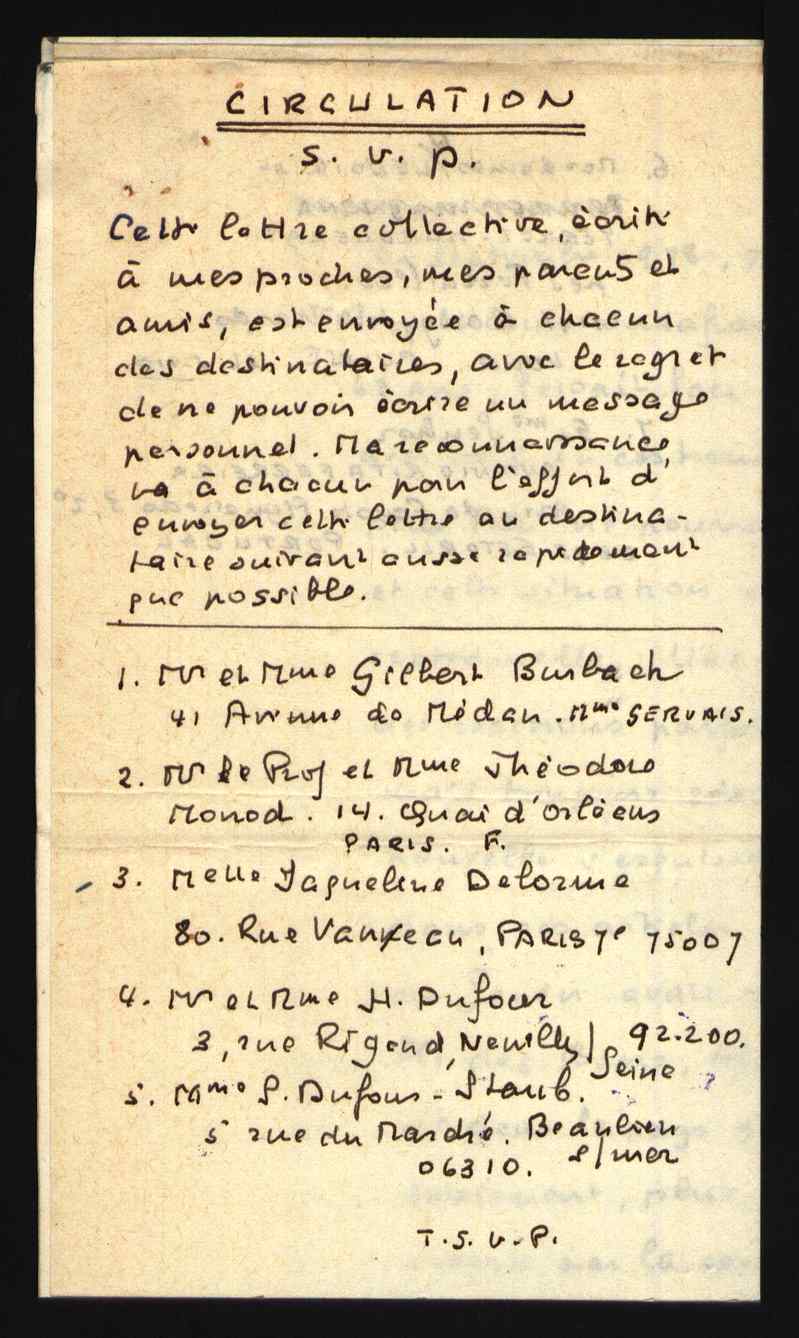 CIRCULATION
S. V. P.
Cette lettre collective, écrite
à mes proches, mes parents et
amis, est envoyée à chacun
des destinataires, avec le regret
de ne pouvoir écrire un message
personnel. Ma reconnaissance
va à chacun pour l'effort d'
envoyer cette lettre au destina-
taire suivant aussi rapidement
que possible.
1. Mr et Mme Gilbert Burbach
41 Avenue de Médan. Mme GERVAIS.
2. Mr le Prof et Mme Théodore
Monod. 14. Quai d'Orléans
PARIS. F.
3. Melle Jaqueline Delorme
80. Rue Vanneau, PARIS 7e 75007
4. Mr et Mme H. Dufour
3, rue Rigaud, Neuilly/ 92.200.
Seine
5. Mme S. Dufour-Staub.
5 rue du Marché. Beaulieu
06310. s/mer
T.S.V.P.